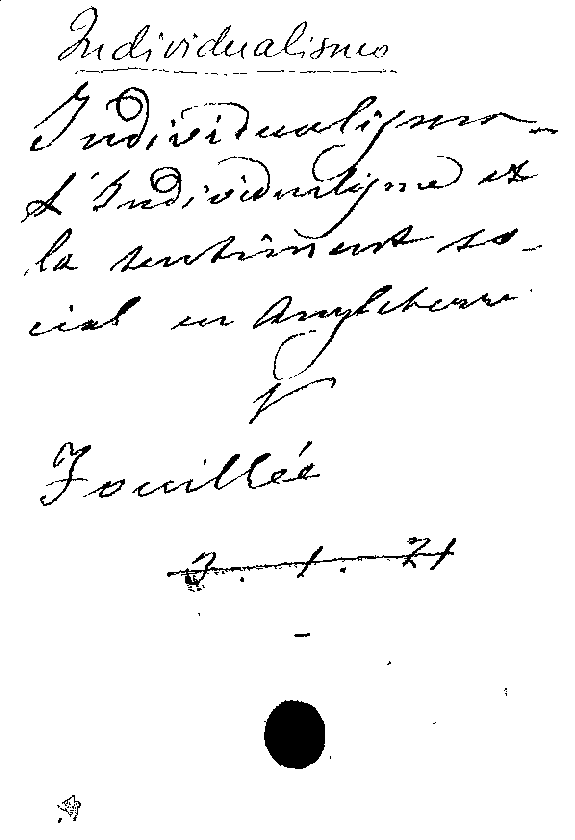 Individualismo
Individualismo –
L'Individualisme et
la sentiment so-
cial en Angleterre
V
Fouillée
3. 1. 21